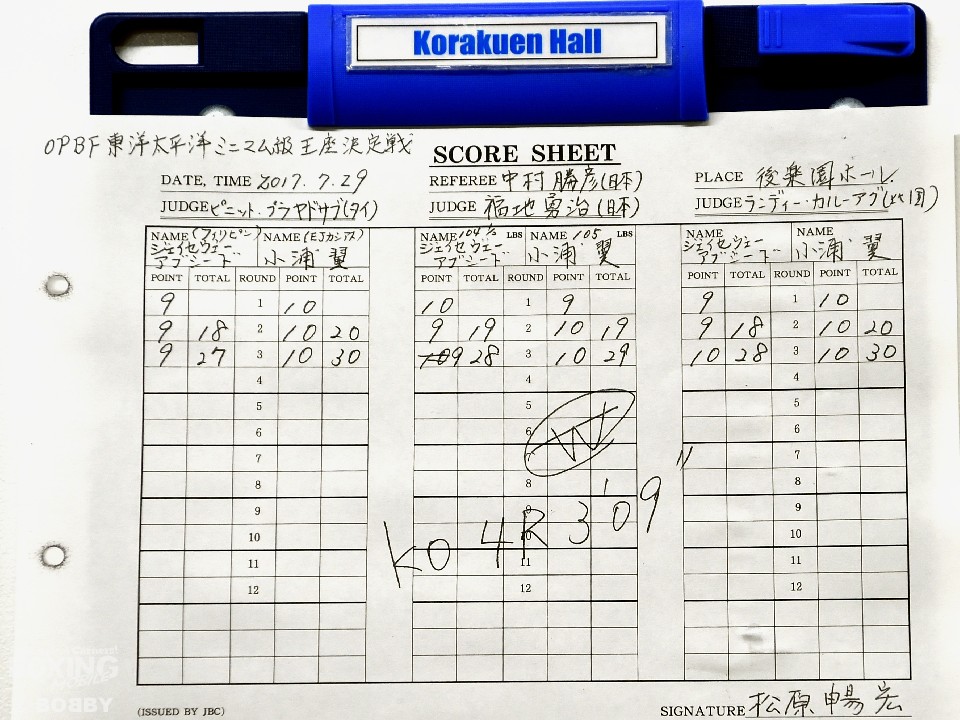 Korakuen Hall
OPBF東洋太平洋ミニマム級王座決定戦
SCORE SHEET
DATE, TIME 2017.7.29 REFEREE 中村勝彦(日本) PLACE 後楽園ホール
JUDGE ピニット・プラヤドサブ(タイ) JUDGE 福地勇治(日本) JUDGE ランディー・カルーアグ(比国)
NAME (フィリピン) NAME (EJカシアス) NAME 104 ½ LBS NAME 105 LBS NAME NAME
ジェイセヴェー 小浦 翼 ジェイセヴェー 小浦 翼 ジェイセヴェー 小浦 翼
アブシード アブシード アブシード
POINT TOTAL ROUND POINT TOTAL POINT TOTAL ROUND POINT TOTAL POINT TOTAL ROUND POINT TOTAL
9 1 10 10 1 9 9 1 10
9 18 2 10 20 9 19 2 10 19 9 18 2 10 20
9 27 3 10 30 9 28 3 10 29 10 28 3 10 30
4 4 4
5 5 5
6 6 6
7 7 7
8 8 8
9 9 9
10 10 10
11 11 11
12 12 12
W
KO 4R 3'09"
(ISSUED BY JBC) SIGNATURE 松原暢宏
BOBBY